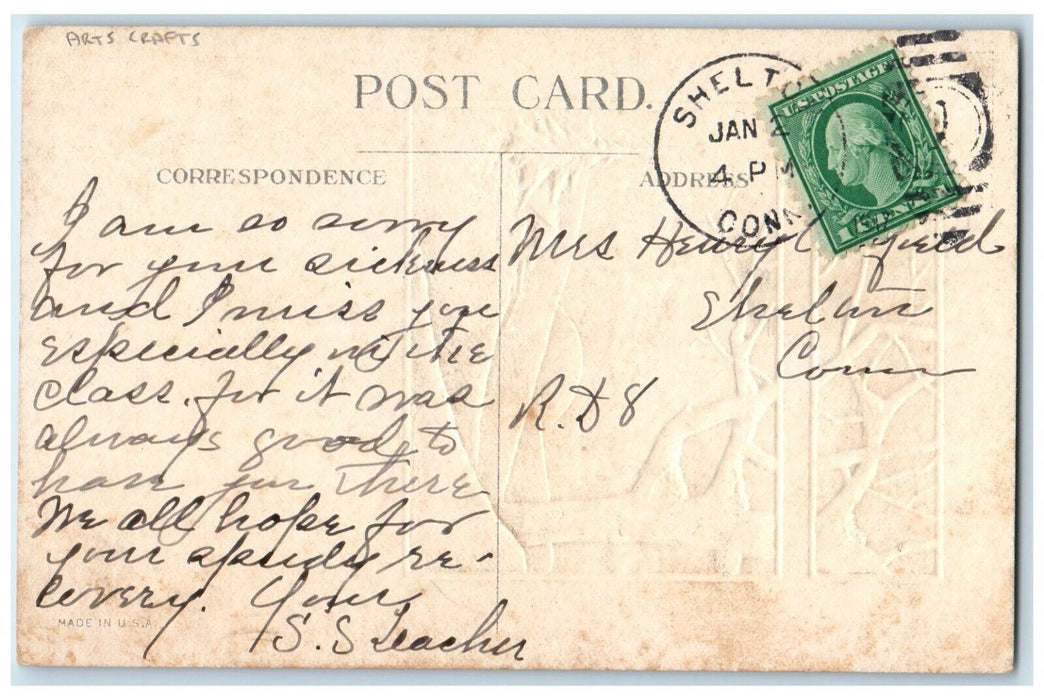 ARTS CRAFTS
POST CARD.
SHELTO
JAN 2
4 P M
CONN
U.S. POSTAGE
CORRESPONDENCE
ADDRESS
I am so sorry
for your sickness
and I miss you
especially in the
class. for it was
always good to
have you there
We all hope for
your speedy re-
covery. Your
S. S Teacher
MADE IN U.S.A.
Mrs Henry
Shelton
Conn
R. D 8